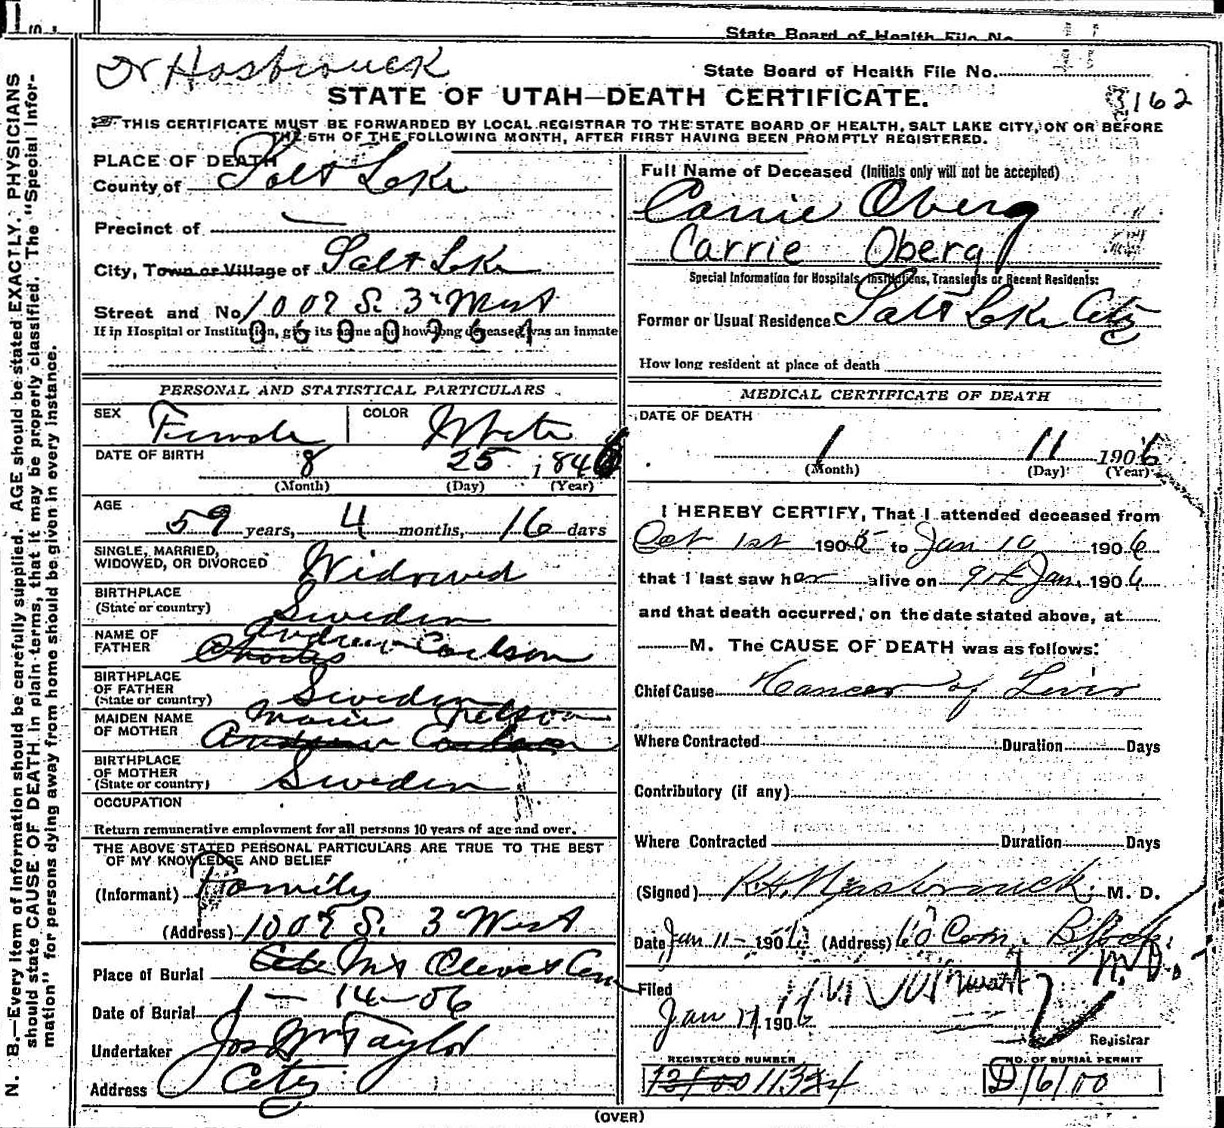 State Board of Health File No.
Dr Hasbrouck
State Board of Health File No.
STATE OF UTAH—DEATH CERTIFICATE.
3162
THIS CERTIFICATE MUST BE FORWARDED BY LOCAL REGISTRAR TO THE STATE BOARD OF HEALTH, SALT LAKE CITY, ON OR BEFORE
THE 5TH OF THE FOLLOWING MONTH, AFTER FIRST HAVING BEEN PROMPTLY REGISTERED.
N. B.—Every item of information should be carefully supplied. AGE should be stated EXACTLY. PHYSICIANS
should state CAUSE OF DEATH in plain terms, that it may be properly classified. The "Special Infor-
mation" for persons dying away from home should be given in every instance.
PLACE OF DEATH
County of Salt Lake
Precinct of —
City, Town or Village of Salt Lake
Street and No. 1007 S. 3rd West
If in Hospital or Institution, give its name and how long deceased was an inmate
PERSONAL AND STATISTICAL PARTICULARS
SEX Female COLOR White
DATE OF BIRTH
8 25 1846
(Month) (Day) (Year)
AGE
59 years, 4 months, 16 days
SINGLE, MARRIED,
WIDOWED, OR DIVORCED Widowed
BIRTHPLACE
(State or country) Sweden
NAME OF
FATHER Andrew Carlson
BIRTHPLACE
OF FATHER
(State or country) Sweden
MAIDEN NAME
OF MOTHER Maria Nelson
Andrew Carlson
BIRTHPLACE
OF MOTHER
(State or country) Sweden
OCCUPATION
Return remunerative employment for all persons 10 years of age and over.
THE ABOVE STATED PERSONAL PARTICULARS ARE TRUE TO THE BEST
OF MY KNOWLEDGE AND BELIEF
(Informant) Family
(Address) 1007 S. 3 West
Place of Burial Mt Olivet Cem
Date of Burial 1 — 14 — 06
Undertaker Jos Wm Taylor
Address City
Full Name of Deceased (Initials only will not be accepted)
Carrie Oberg
Carrie Oberg
Special Information for Hospitals, Institutions, Transients or Recent Residents:
Former or Usual Residence Salt Lake City
How long resident at place of death
MEDICAL CERTIFICATE OF DEATH
DATE OF DEATH
1 11 1906
(Month) (Day) (Year)
I HEREBY CERTIFY, That I attended deceased from
Oct 1st 1905 to Jan 10 1906
that I last saw her alive on 9th Jan. 1906
and that death occurred, on the date stated above, at
M. The CAUSE OF DEATH was as follows:
Chief Cause Cancer of Liver
Where Contracted Duration Days
Contributory (if any)
Where Contracted Duration Days
(Signed) Hasbrouck M. D.
Date Jan 11 - 1906 (Address) Com. Block
Filed
Jan 1906
M.D.
Registrar
REGISTERED NUMBER
NO. OF BURIAL PERMIT
D/6/00
(OVER)